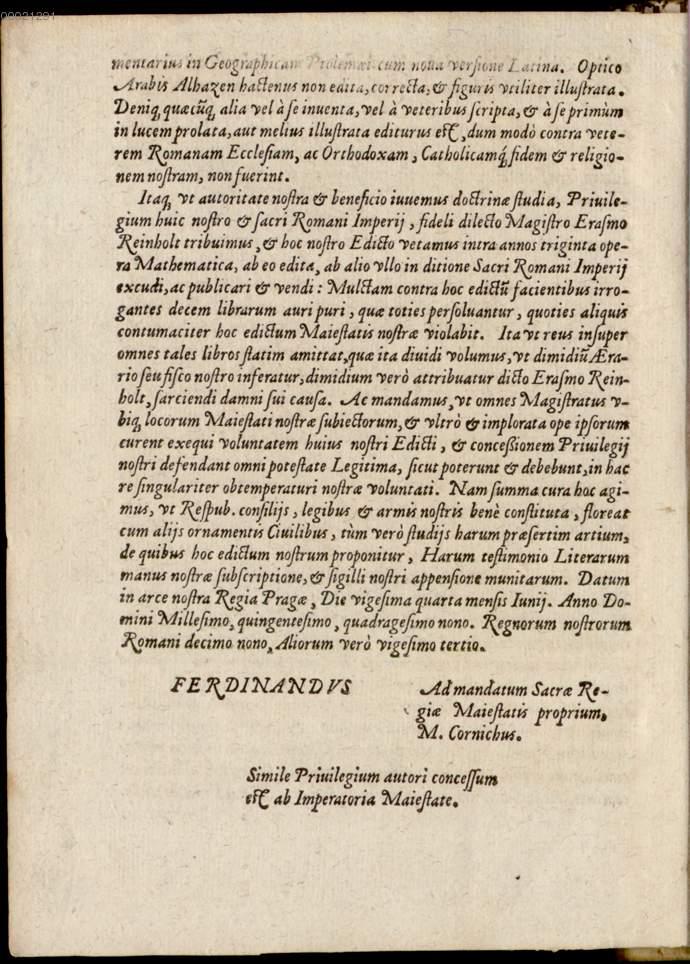 00021291
mentarius in Geographicam Ptolemæi cum noua versione Latina. Optico
Arabis Alhazen hactenus non edita, correcta, & figuris vtiliter illustrata.
Deniq́ꝫ quæcũq́ꝫ alia vel à se inuenta, vel à veteribus scripta, & à se primùm
in lucem prolata, aut melius illustrata editurus est, dum modò contra vete-
rem Romanam Ecclesiam, ac Orthodoxam, Catholicamq́ꝫ fidem & religio-
nem nostram, non fuerint.
Itaqꝫ vt autoritate nostra & beneficio iuuemus doctrinæ studia, Priuile-
gium huic nostro & sacri Romani Imperij, fideli dilecto Magistro Erasmo
Reinholt tribuimus, & hoc nostro Edicto vetamus intra annos triginta ope-
ra Mathematica, ab eo edita, ab alio vllo in ditione Sacri Romani Imperij
excudi, ac publicari & vendi: Mulctam contra hoc edictũ facientibus irro-
gantes decem librarum auri puri, quæ toties persoluantur, quoties aliquis
contumaciter hoc edictum Maiestatis nostræ violabit. Ita vt reus insuper
omnes tales libros statim amittat, quæ ita diuidi volumus, vt dimidiũ Æra-
rio seu fisco nostro inferatur, dimidium verò attribuatur dicto Erasmo Rein-
holt, sarciendi damni sui causa. Ac mandamus, vt omnes Magistratus v-
biqꝫ locorum Maiestati nostræ subiectorum, & vltrò & implorata ope ipsorum
curent exequi voluntatem huius nostri Edicti, & concessionem Priuilegij
nostri defendant omni potestate Legitima, sicut poterunt & debebunt, in hac
re singulariter obtemperaturi nostræ voluntati. Nam summa cura hoc agi-
mus, vt Respub. consilijs, legibus & armis nostris benè constituta, floreat
cum alijs ornamentis Ciuilibus, tùm verò studijs harum præsertim artium,
de quibus hoc edictum nostrum proponitur, Harum testimonio Literarum
manus nostræ subscriptione, & sigilli nostri appensione munitarum. Datum
in arce nostra Regia Pragæ, Die vigesima quarta mensis Iunij. Anno Do-
mini Millesimo, quingentesimo, quadragesimo nono. Regnorum nostrorum
Romani decimo nono, Aliorum verò vigesimo tertio.
FERDINANDVS
Ad mandatum Sacræ Re-
giæ Maiestatis proprium,
M. Cornichus.
Simile Priuilegium autori concessum
est ab Imperatoria Maiestate.